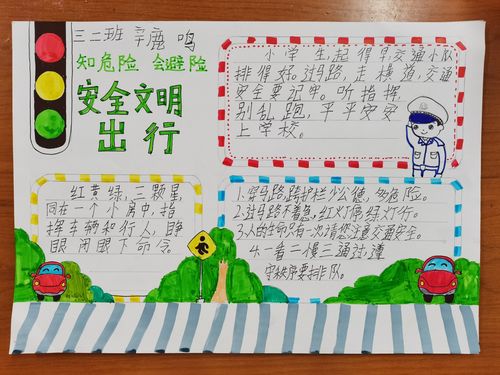 三二班 辛鹿 鸣
知危险 会避险
安全文明
出行
小学生起得早,交通小队
排得好。过马路,走横道,交通
安全要记牢。听指挥,
别乱跑,平平安安
上学校。
红黄绿,三颗星,
同在一个小房中,指
挥车辆和行人,睁
眼闭眼下命令。
1.穿马路,踏栏少公德,多危险。
2.过马路不着急,红灯停绿灯行。
3.人的生命只有一次请您注意交通安全。
4.一看二慢三通过遵
守秩序要排队。